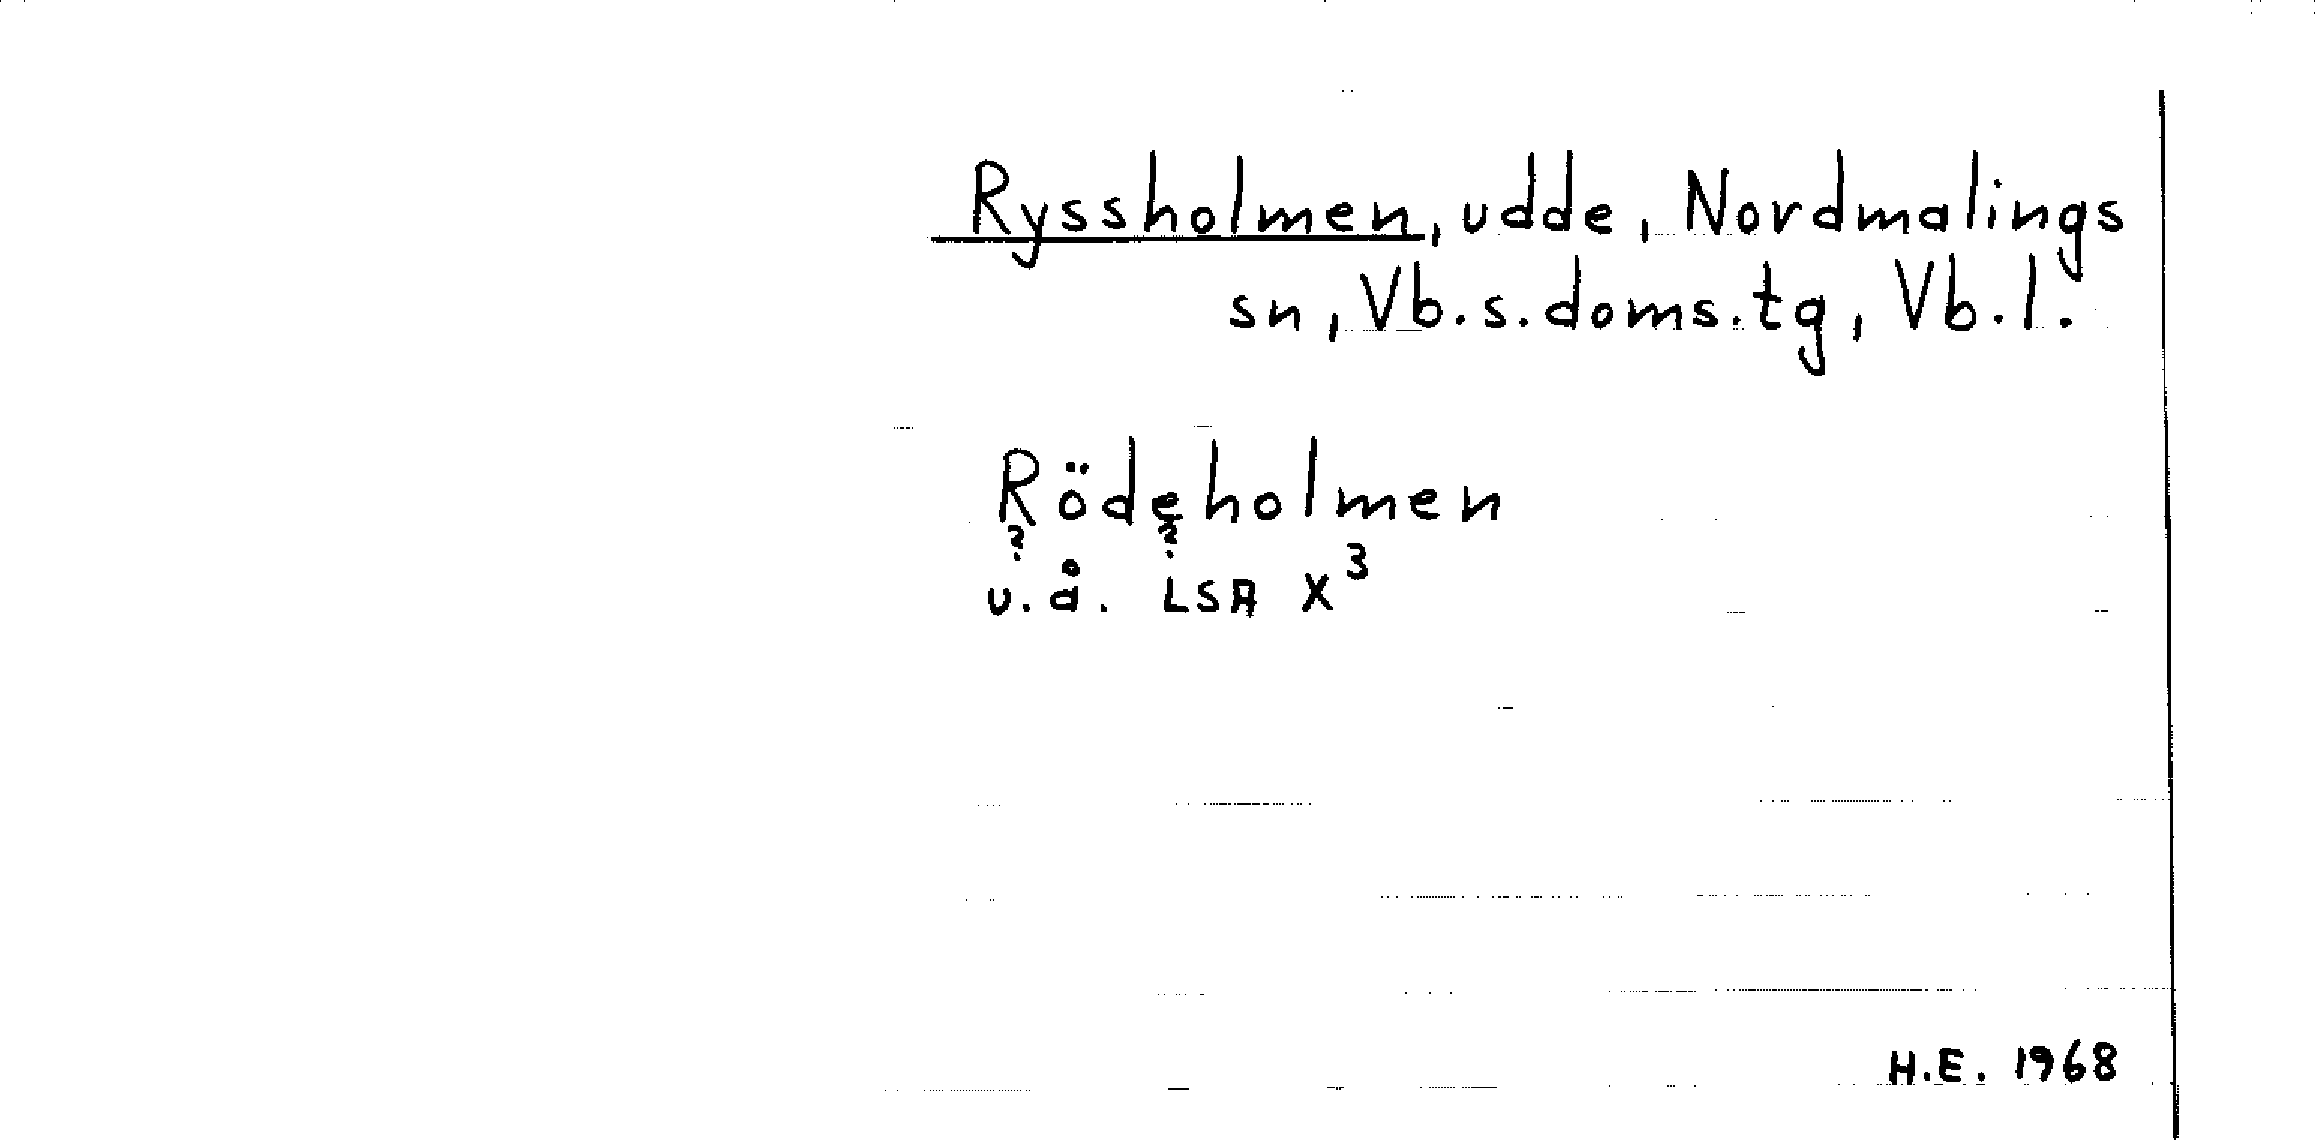 Ryssholmen, udde, Nordmalings
sn, Vb.s.doms.tg, Vb.l.
Rödeholmen
? ?
u.å. LSA X³
H.E. 1968